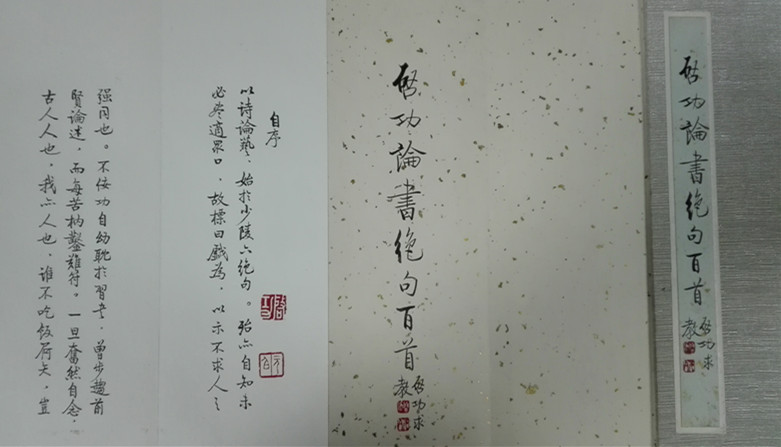 啟功論書絕句百首
啟功求
教
啟功論書絕句百首
啟功求
教
自序
以詩論藝，始於少陵六絕句。殆亦自知未
必盡適眾口，故標曰戲為，以示不求人之
强同也。不佞功自幼耽於習書，曾步趨前
賢論述，而每苦枘鑿難符。一旦奮然自念，
古人人也，我亦人也，誰不吃飯屙矢，豈